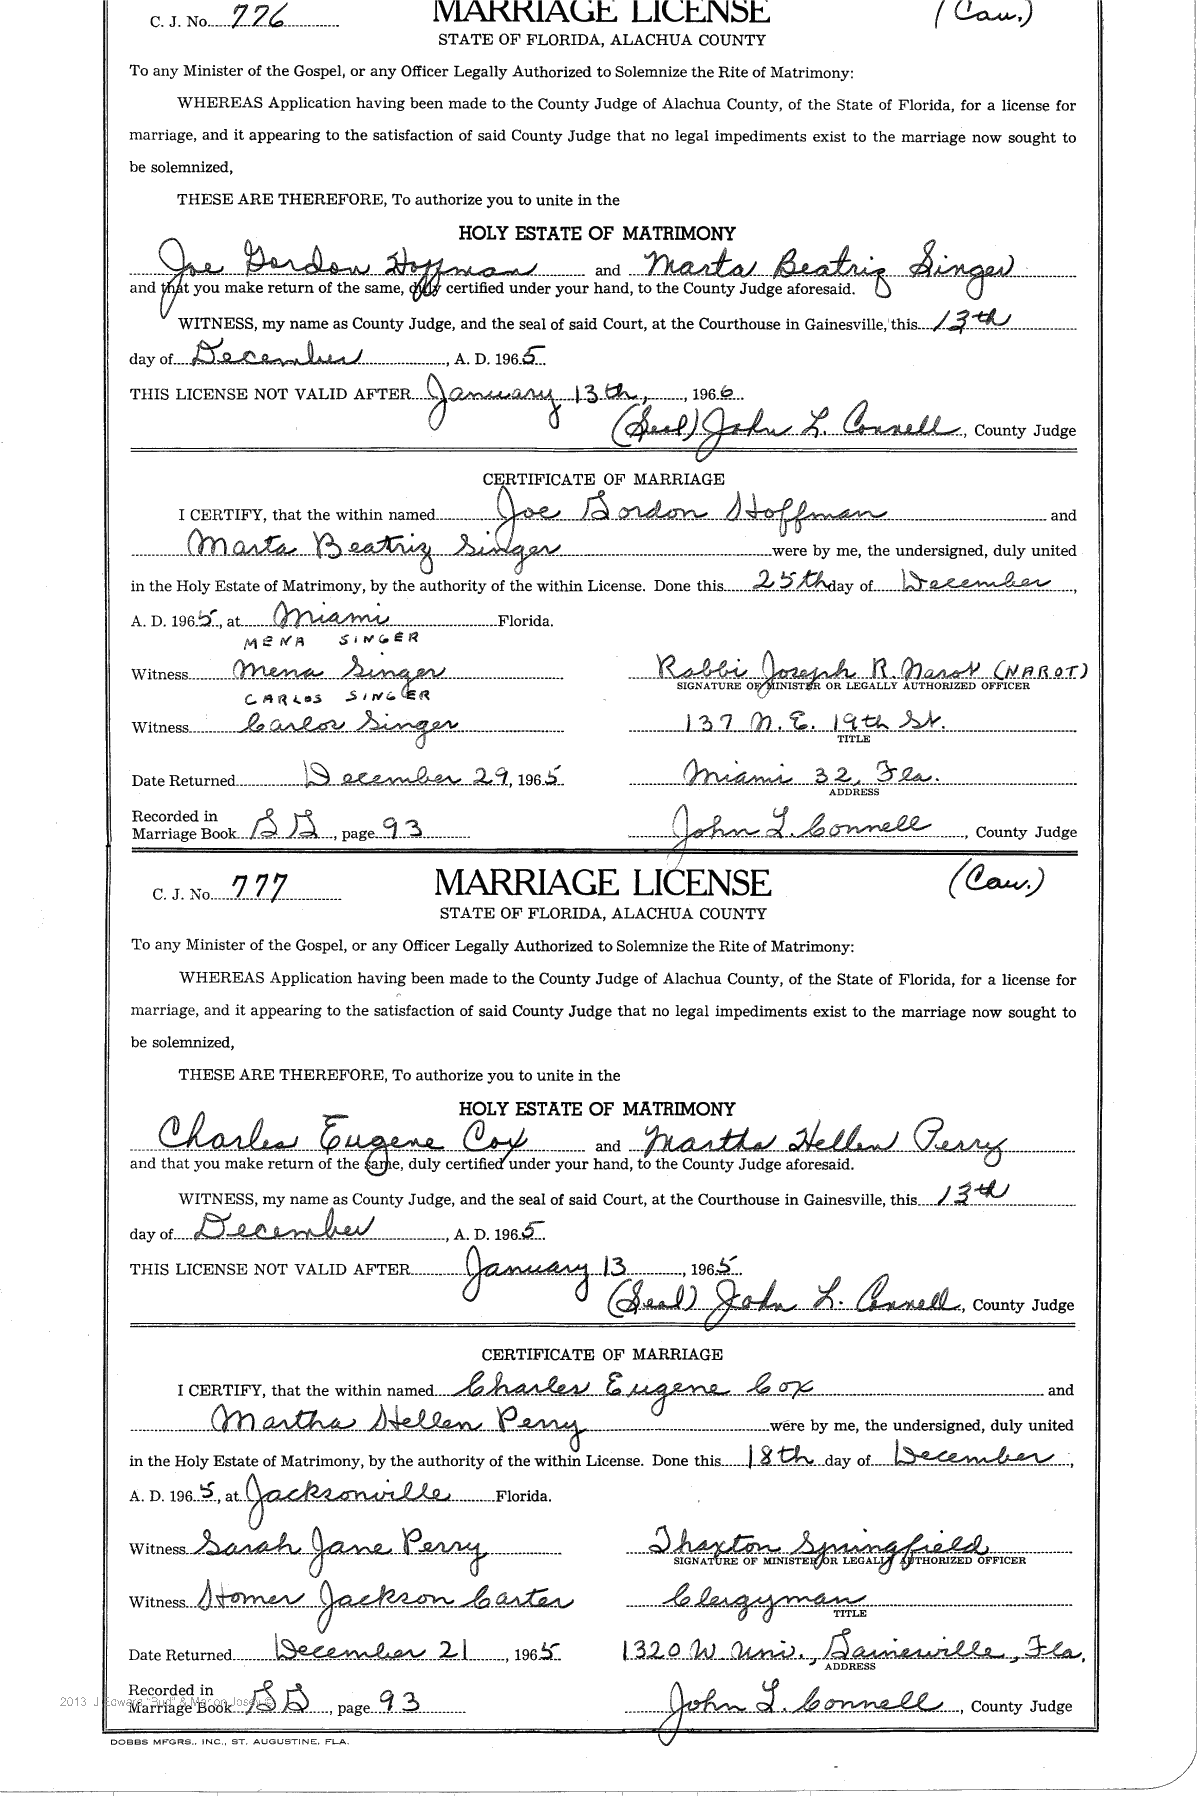 C. J. No. 776 MARRIAGE LICENSE (Cau.)
STATE OF FLORIDA, ALACHUA COUNTY
To any Minister of the Gospel, or any Officer Legally Authorized to Solemnize the Rite of Matrimony:
WHEREAS Application having been made to the County Judge of Alachua County, of the State of Florida, for a license for
marriage, and it appearing to the satisfaction of said County Judge that no legal impediments exist to the marriage now sought to
be solemnized,
THESE ARE THEREFORE, To authorize you to unite in the
HOLY ESTATE OF MATRIMONY
Joe Gordon Hoffman and Marta Beatriz Singer
and that you make return of the same, duly certified under your hand, to the County Judge aforesaid.
WITNESS, my name as County Judge, and the seal of said Court, at the Courthouse in Gainesville, this 13th
day of December, A. D. 1965
THIS LICENSE NOT VALID AFTER January 13th, 1966
(Seal) John L. Connell, County Judge
CERTIFICATE OF MARRIAGE
I CERTIFY, that the within named Joe Gordon Hoffman and
Marta Beatriz Singer were by me, the undersigned, duly united
in the Holy Estate of Matrimony, by the authority of the within License. Done this 25th day of December,
A. D. 1965, at Miami Florida.
MENA SINGER
Witness Mena Singer Rabbi Joseph R. Narot (NAROT)
SIGNATURE OF MINISTER OR LEGALLY AUTHORIZED OFFICER
CARLOS SINGER
Witness Carlos Singer 137 N.E. 19th St.
TITLE
Date Returned December 29, 1965 Miami 32, Fla.
ADDRESS
Recorded in
Marriage Book SS, page 93 John L. Connell, County Judge
C. J. No. 777 MARRIAGE LICENSE (Cau.)
STATE OF FLORIDA, ALACHUA COUNTY
To any Minister of the Gospel, or any Officer Legally Authorized to Solemnize the Rite of Matrimony:
WHEREAS Application having been made to the County Judge of Alachua County, of the State of Florida, for a license for
marriage, and it appearing to the satisfaction of said County Judge that no legal impediments exist to the marriage now sought to
be solemnized,
THESE ARE THEREFORE, To authorize you to unite in the
HOLY ESTATE OF MATRIMONY
Charles Eugene Cox and Martha Hellen Perry
and that you make return of the same, duly certified under your hand, to the County Judge aforesaid.
WITNESS, my name as County Judge, and the seal of said Court, at the Courthouse in Gainesville, this 13th
day of December, A. D. 1965
THIS LICENSE NOT VALID AFTER January 13, 1965
(Seal) John L. Connell, County Judge
CERTIFICATE OF MARRIAGE
I CERTIFY, that the within named Charles Eugene Cox and
Martha Hellen Perry were by me, the undersigned, duly united
in the Holy Estate of Matrimony, by the authority of the within License. Done this 18th day of December,
A. D. 1965, at Jacksonville Florida.
Witness Sarah Jane Perry Thaxton Springfield
SIGNATURE OF MINISTER OR LEGALLY AUTHORIZED OFFICER
Witness Homer Jackson Carter Clergyman
TITLE
Date Returned December 21, 1965 1320 W. Uni., Gainesville, Fla.
ADDRESS
Recorded in
2013 J Edward "Bud" & Macon Josey ©
Marriage Book SS, page 93 John L. Connell, County Judge
DOBBS MFGRS., INC., ST. AUGUSTINE, FLA.